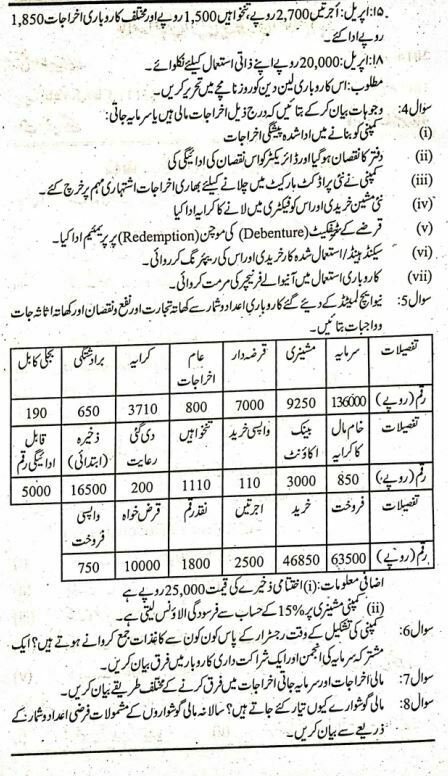 ۱۵؍اپریل: اُجرتیں 2,700 روپے، تنخواہیں 1,500 روپے اور مختلف کاروباری اخراجات 1,850
روپے ادا کئے۔
۱۸؍اپریل: 20,000 روپے اپنے ذاتی استعمال کیلئے نکلوائے۔
مطلوب: اس کاروباری لین دین کو روزنامچے میں تحریر کریں۔
سوال 4: وجوہات بیان کر کے بتائیں کہ درج ذیل اخراجات مالی ہیں یا سرمایہ جاتی:
(i) کمپنی کو بنانے میں ادا شدہ پیشگی اخراجات
(ii) دفتر کا نقصان ہو گیا اور ڈائریکٹر کو اس نقصان کی ادائیگی کی
(iii) کمپنی نے نئی پراڈکٹ مارکیٹ میں چلانے کیلئے بھاری اخراجات اشتہاری مہم پر خرچ کئے۔
(iv) نئی مشین خریدی اور اس کو فیکٹری میں لانے کا کرایہ ادا کیا
(v) قرضے کے سرٹیفکیٹ (Debenture) کی موچن (Redemption) پر پریمیم ادا کیا۔
(vi) سیکنڈ ہینڈ/استعمال شدہ کار خریدی اور اس کی ریپئرنگ کروائی۔
(vii) کاروباری استعمال میں آنیوالے فرنیچر کی مرمت کروائی۔
سوال 5: نیو ایج لمیٹڈ کے دیئے گئے کاروباری اعداد و شمار سے کھاتہ تجارت اور نفع و نقصان اور کھاتہ اثاثہ جات
و واجبات بتائیں۔
تفصیلات سرمایہ مشینری قرضہ دار عام اخراجات کرایہ برداشتگی بجلی کا بل
رقم (روپے) 136000 9250 7000 800 3710 650 190
تفصیلات خام مال کا کرایہ بینک اکاؤنٹ واپسی خرید تنخواہیں دی گئی رعایت ذخیرہ (ابتدائی) قابل ادائیگی رقم
رقم (روپے) 850 3000 110 1110 200 16500 5000
تفصیلات فروخت خرید اجرتیں نقد رقم قرض خواہ واپسی فروخت
رقم (روپے) 63500 46850 2500 1800 10000 750
اضافی معلومات: (i) اختتامی ذخیرے کی قیمت 25,000 روپے ہے
(ii) کمپنی مشینری پر 15% کے حساب سے فرسودگی الاؤنس لیتی ہے۔
سوال 6: کمپنی کی تشکیل کے وقت رجسٹرار کے پاس کون کون سے کاغذات جمع کروانے ہوتے ہیں؟ ایک
مشترکہ سرمایہ کی انجمن اور ایک شراکت داری کاروبار میں فرق بیان کریں۔
سوال 7: مالی اخراجات اور سرمایہ جاتی اخراجات میں فرق کرنے کے مختلف طریقے بیان کریں۔
سوال 8: مالی گوشوارے کیوں تیار کئے جاتے ہیں؟ سالانہ مالی گوشواروں کے مشمولات فرضی اعداد و شمار کے
ذریعے سے بیان کریں۔